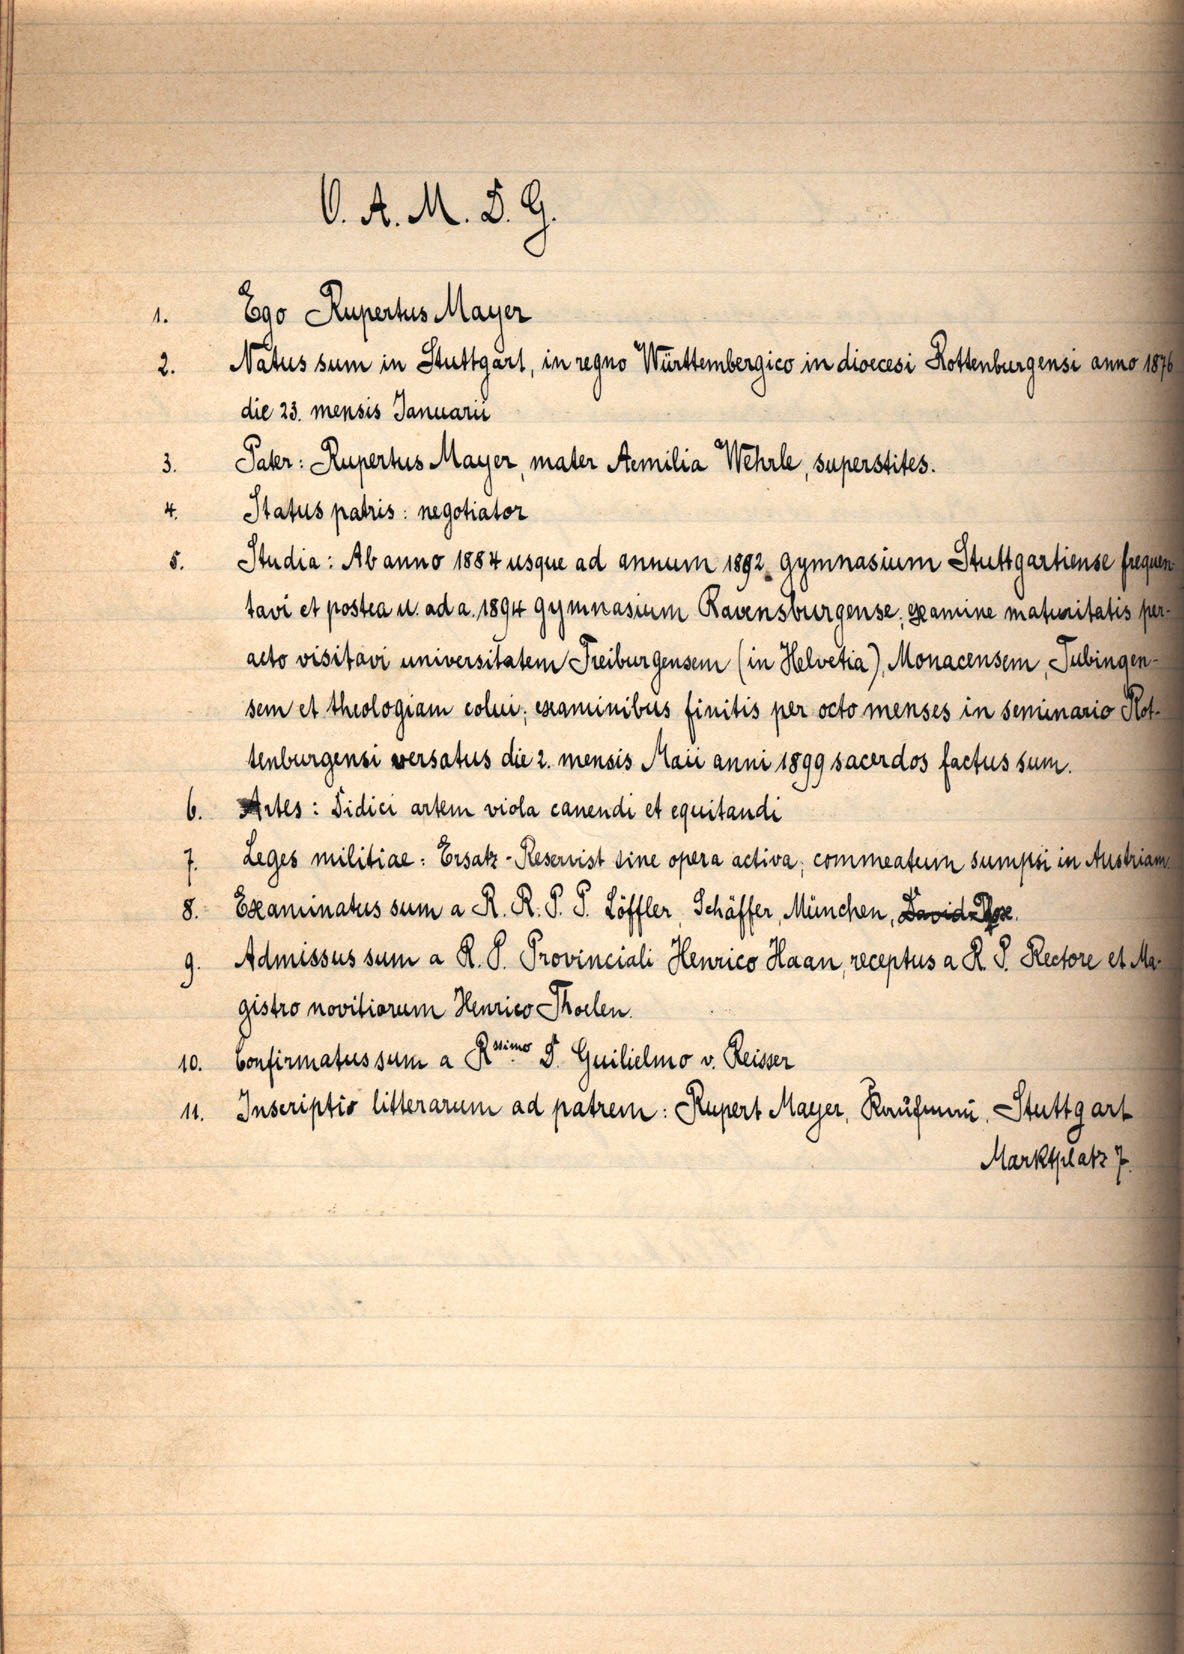 O. A. M. D. G.
1. Ego Rupertus Mayer
2. Natus sum in Stuttgart, in regno Württembergico in dioecesi Rottenburgensi anno 1876
die 23. mensis Januarii
3. Pater: Rupertus Mayer, mater Aemilia Wehrle, superstites.
4. Status patris: negotiator
5. Studia: Ab anno 1884 usque ad annum 1892 gymnasium Stuttgartiense frequen-
tavi et postea u. ad a. 1894 gymnasium Ravensburgense; examine maturitatis per-
acto visitavi universitatem Freiburgensem (in Helvetia), Monacensem, Tubingen-
sem et theologiam colui; examinibus finitis per octo menses in seminario Rot-
tenburgensi versatus die 2. mensis Maii anni 1899 sacerdos factus sum.
6. Artes: Didici artem viola canendi et equitandi
7. Leges militiae: Ersatz-Reservist sine opera activa; commeatum sumpsi in Austriam.
8. Examinatus sum a R. R. P. P. Löffler, Schäffer, München, David
9. Admissus sum a R. P. Provinciali Henrico Haan, receptus a R. P. Rectore et Ma-
gistro novitiorum Henrico Thoelen.
10. Confirmatus sum a Rssimo D. Guilielmo v. Reisser
11. Inscriptio litterarum ad patrem: Rupert Mayer, Kaufmann, Stuttgart
Marktplatz 7.